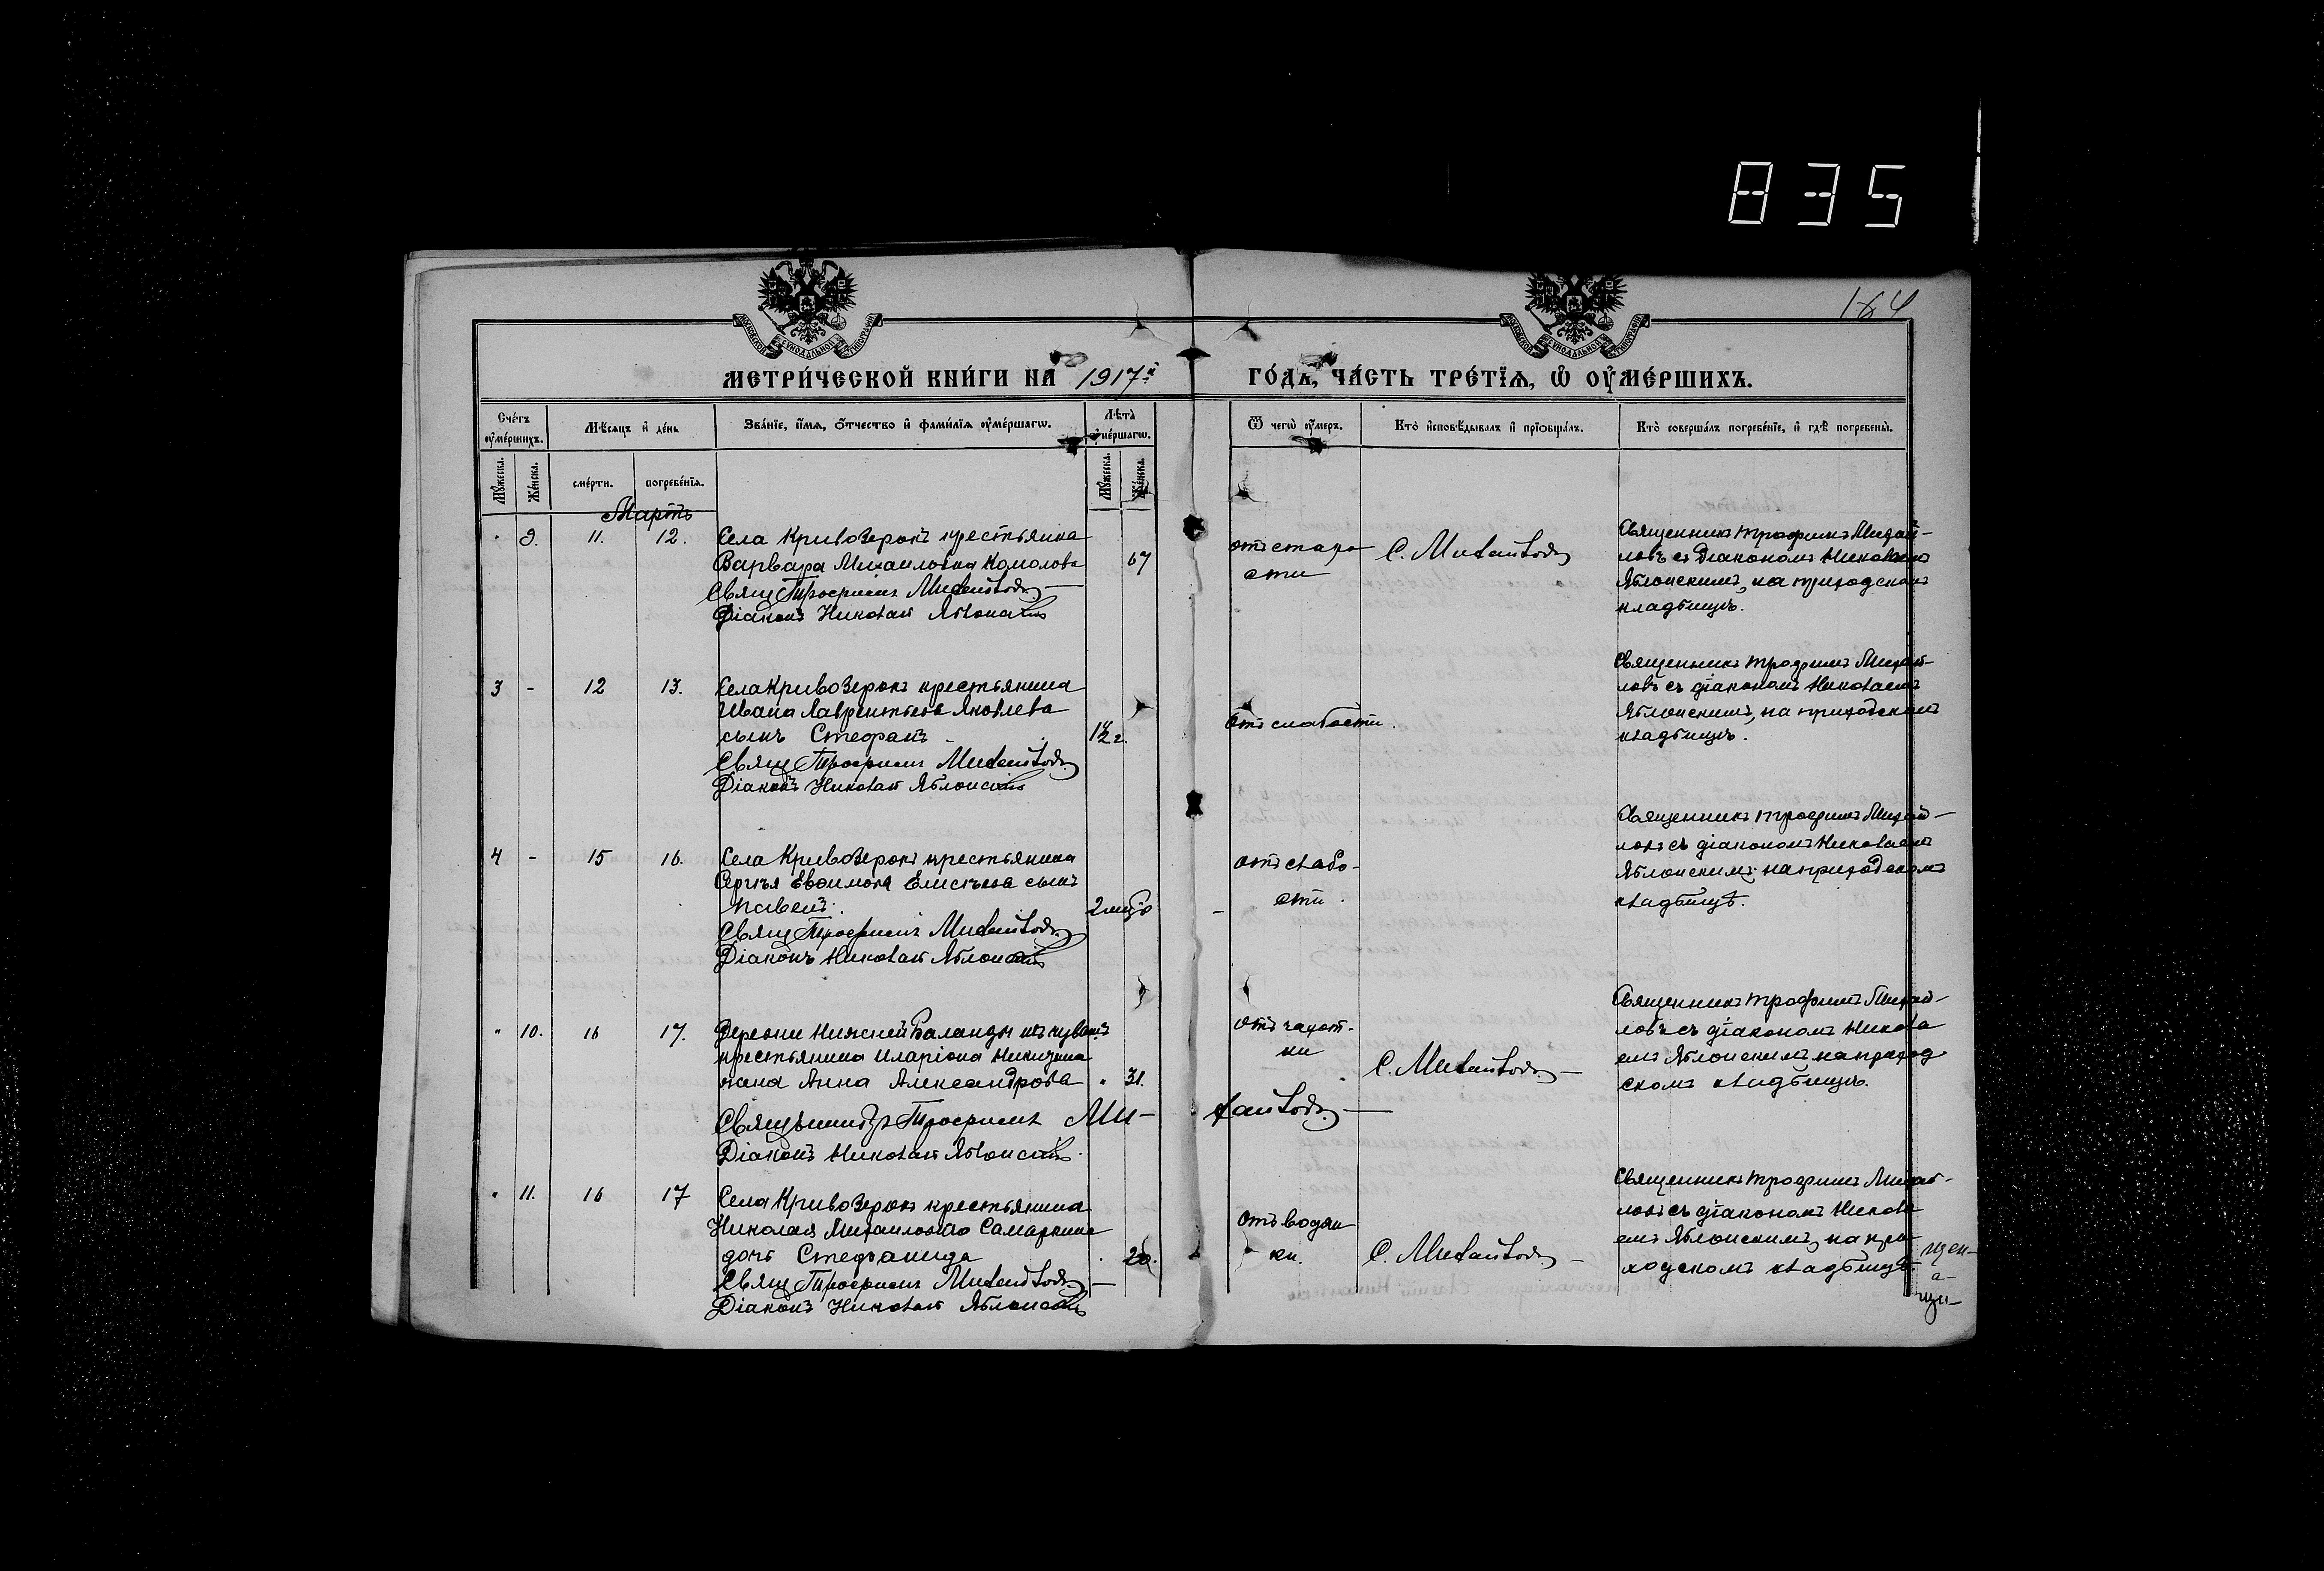 835
184
МЕТРИ́ЧЕСКОЙ КНИ́ГИ НА 1917й ГО́ДЪ, ЧА́СТЬ ТРЕ́ТЇѦ, Ѡ҆ ОУ҆МЕ́РШИХЪ.
Сче́тъ оу҆ме́ршихъ.
Мѣ́сѧцъ и҆ де́нь
Зва́нїе, и҆́мѧ, ѻ҆́тчество и҆ фами́лїѧ оу҆ме́ршагѡ.
Лѣ́та оу҆ме́ршагѡ.
Ѿ чегѡ̀ оу҆́меръ.
Кто̀ и҆сповѣ́дывалъ и҆ прїѡбща́лъ.
Кто̀ соверша́лъ погребе́нїе, и҆ гдѣ̀ погребены̀.
Мꙋ́жеска.
Же́нска.
сме́рти.
погребе́нїѧ.
Мꙋ́жеска.
Же́нска.
Мартъ
9. 11. 12. Села Кривозерокъ крестьянка
Варвара Михаиловна 67
Свящ Трофимъ Михайловъ
Діаконъ Николай Яблонскій
отъ старо
сти
С. Михайловъ
Священникъ Трофимъ Михай-
ловъ съ Діакономъ Николаемъ
Яблонскимъ, на приходскомъ
кладбищѣ.
3 - 12 13. Села Кривозерокъ крестьянина
Ивана Лаврентьева Яковлева
сынъ Стефанъ
Свящ Трофимъ Михайловъ
Діаконъ Николай Яблонскій
отъ слабости.
Священникъ Трофимъ Михай-
ловъ съ діакономъ Николаемъ
Яблонскимъ, на приходскомъ
кладбищѣ.
4 - 15 16. Села Кривозерокъ крестьянина
Сергѣя Евѳимова Елисѣева сынъ
Павелъ.
Свящ Трофимъ Михайловъ
Діаконъ Николай Яблонскій
отъ слабо-
сти.
Священникъ Трофимъ Михай-
ловъ съ діакономъ Николаемъ
Яблонскимъ на приходскомъ
кладбищѣ.
" 10. 16 17. Деревни Нижней Баланды
крестьянина Иларіона Никитина
жена Анна Александрова " 31.
Священникъ Трофимъ Ми-хайловъ
Діаконъ Николай Яблонскій
отъ чахот-
ки
С. Михайловъ
Священникъ Трофимъ Михай-
ловъ съ діакономъ Никола
емъ Яблонскимъ на приход
скомъ кладбищѣ.
" 11. 16 17 Села Кривозерокъ крестьянина
Николая Михаилова Самаркина
дочь Стефанида 20.
Свящ Трофимъ Михайловъ
Діаконъ Николай Яблонскій
отъ водян
ки.
С. Михайловъ
Священникъ Трофимъ Михай-
ловъ съ діакономъ Никола
емъ Яблонскимъ, на при-
ходскомъ кладбищѣ.